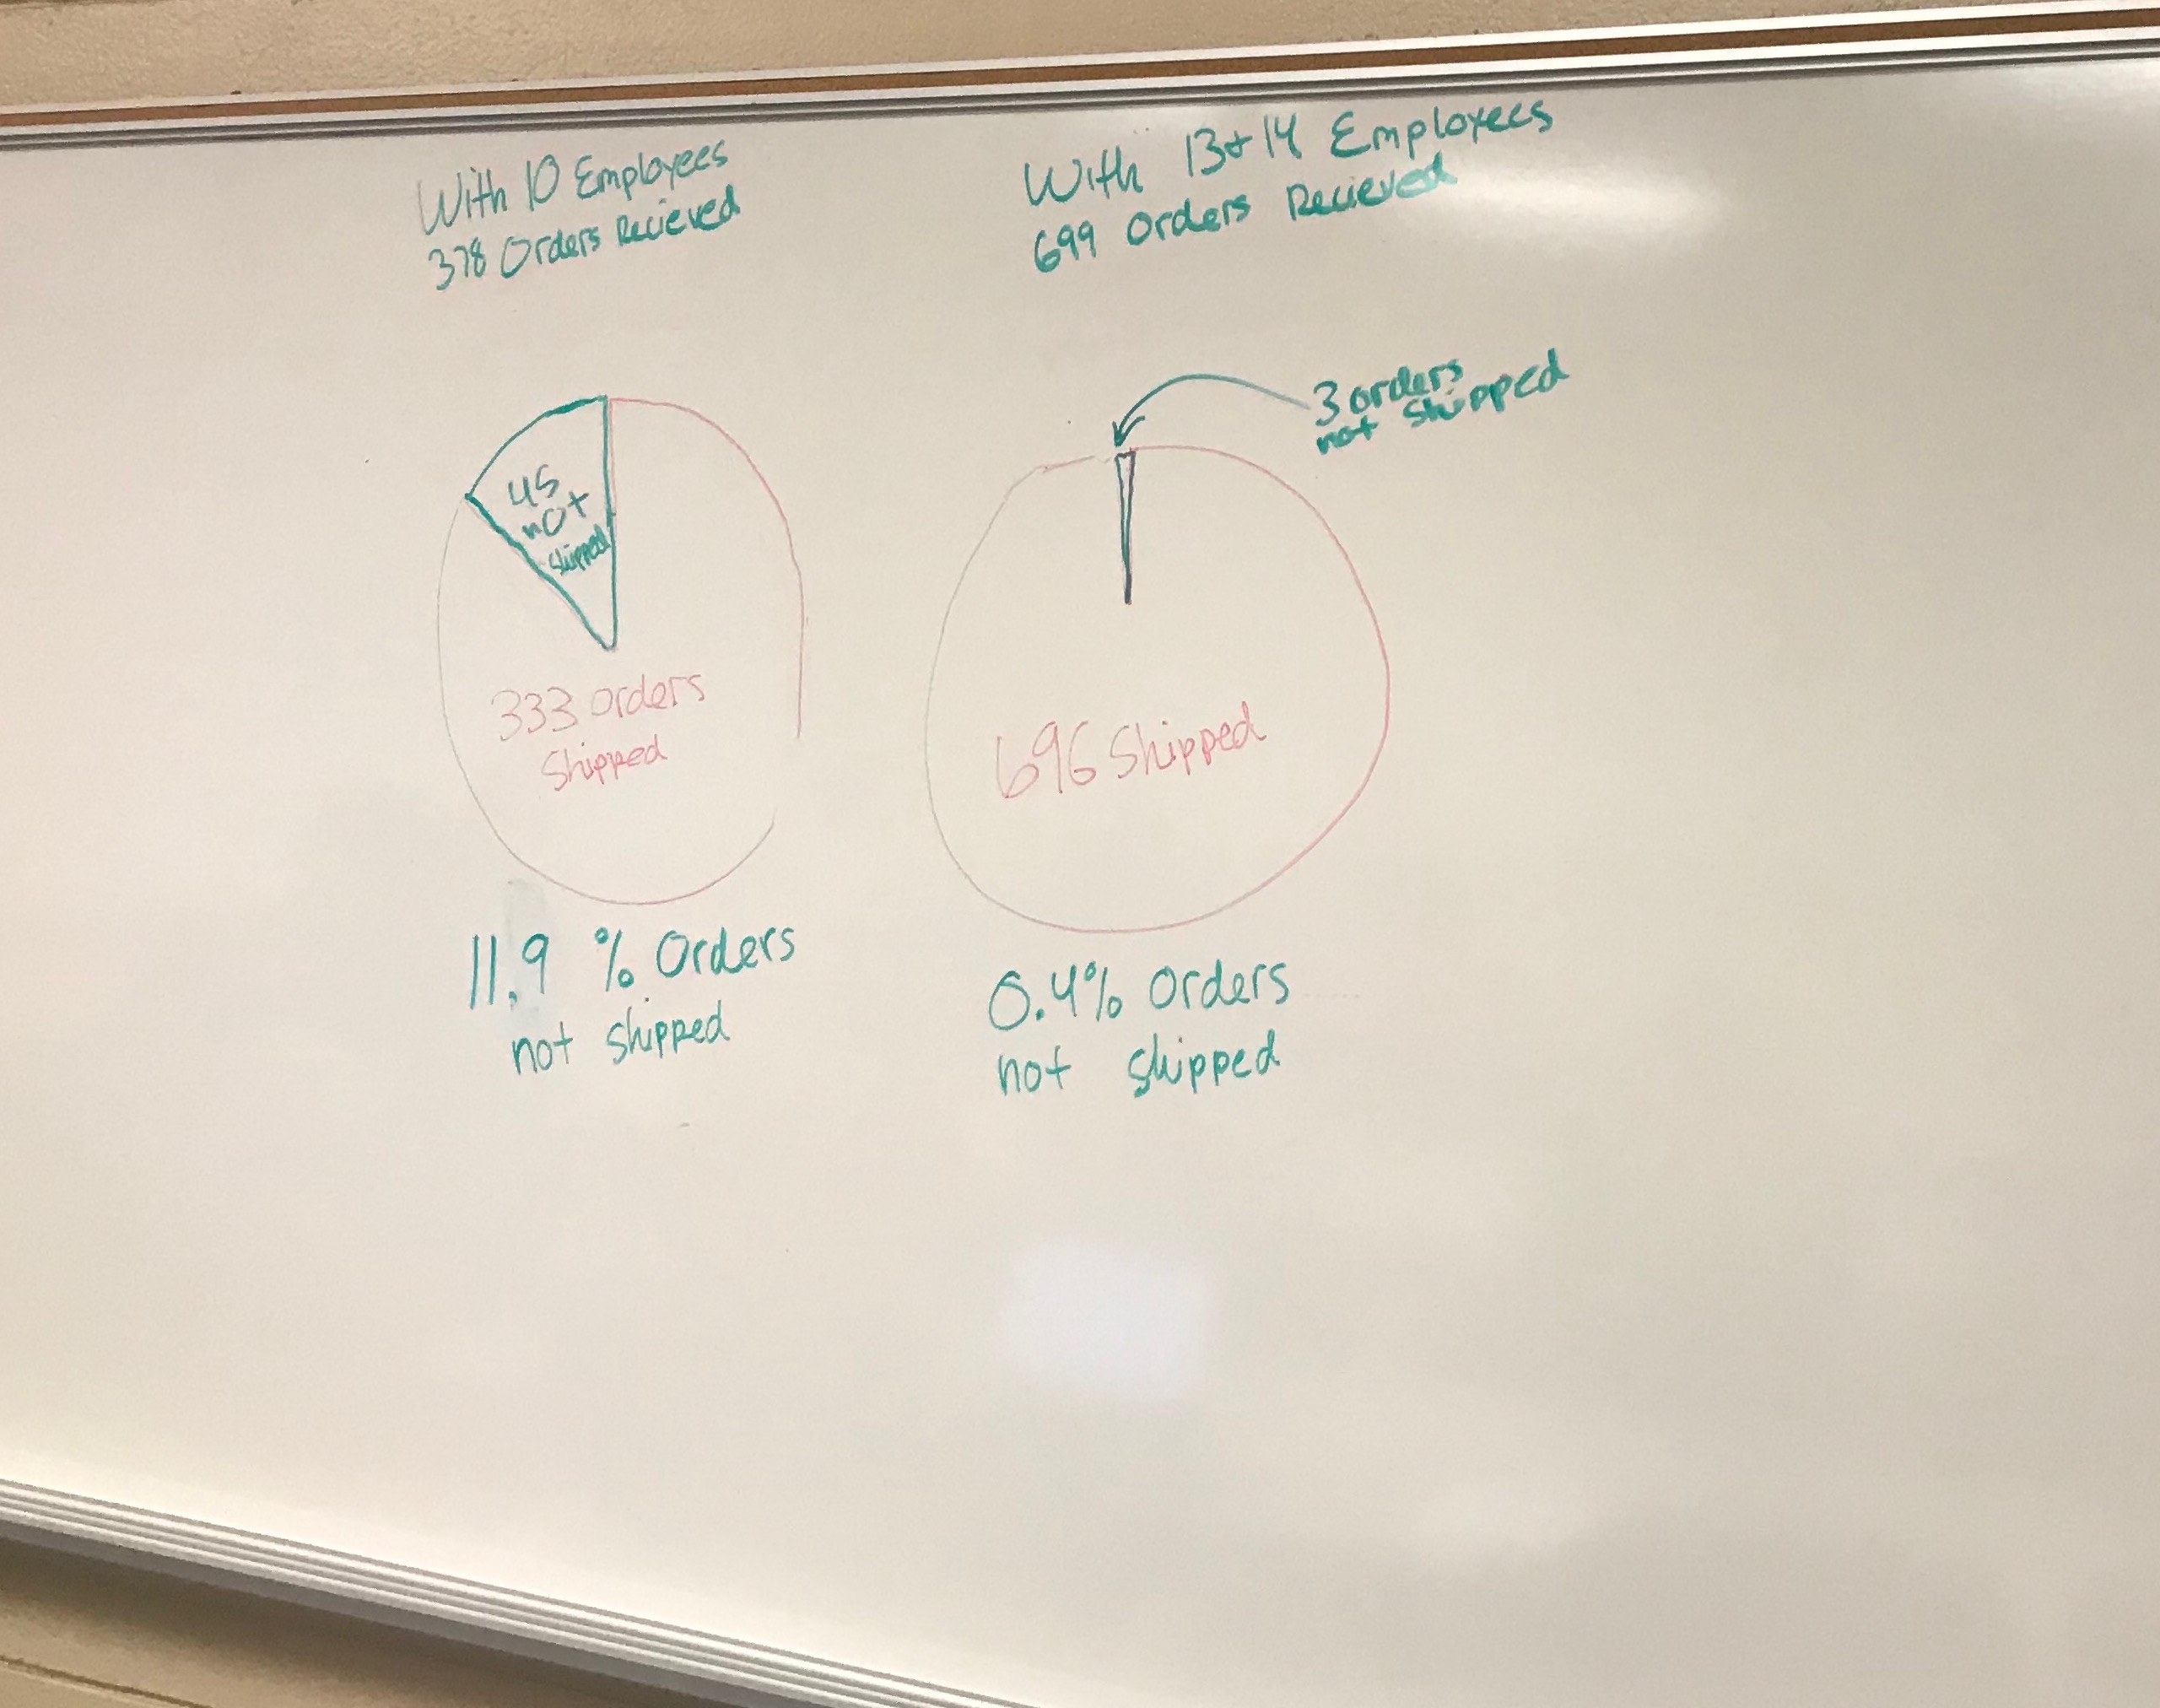 With 10 Employees
378 Orders Recieved
45
not
shipped
333 Orders
Shipped
11.9 % Orders
not shipped
With 13+14 Employees
699 Orders Recieved
3 orders
not shipped
696 Shipped
0.4% Orders
not shipped